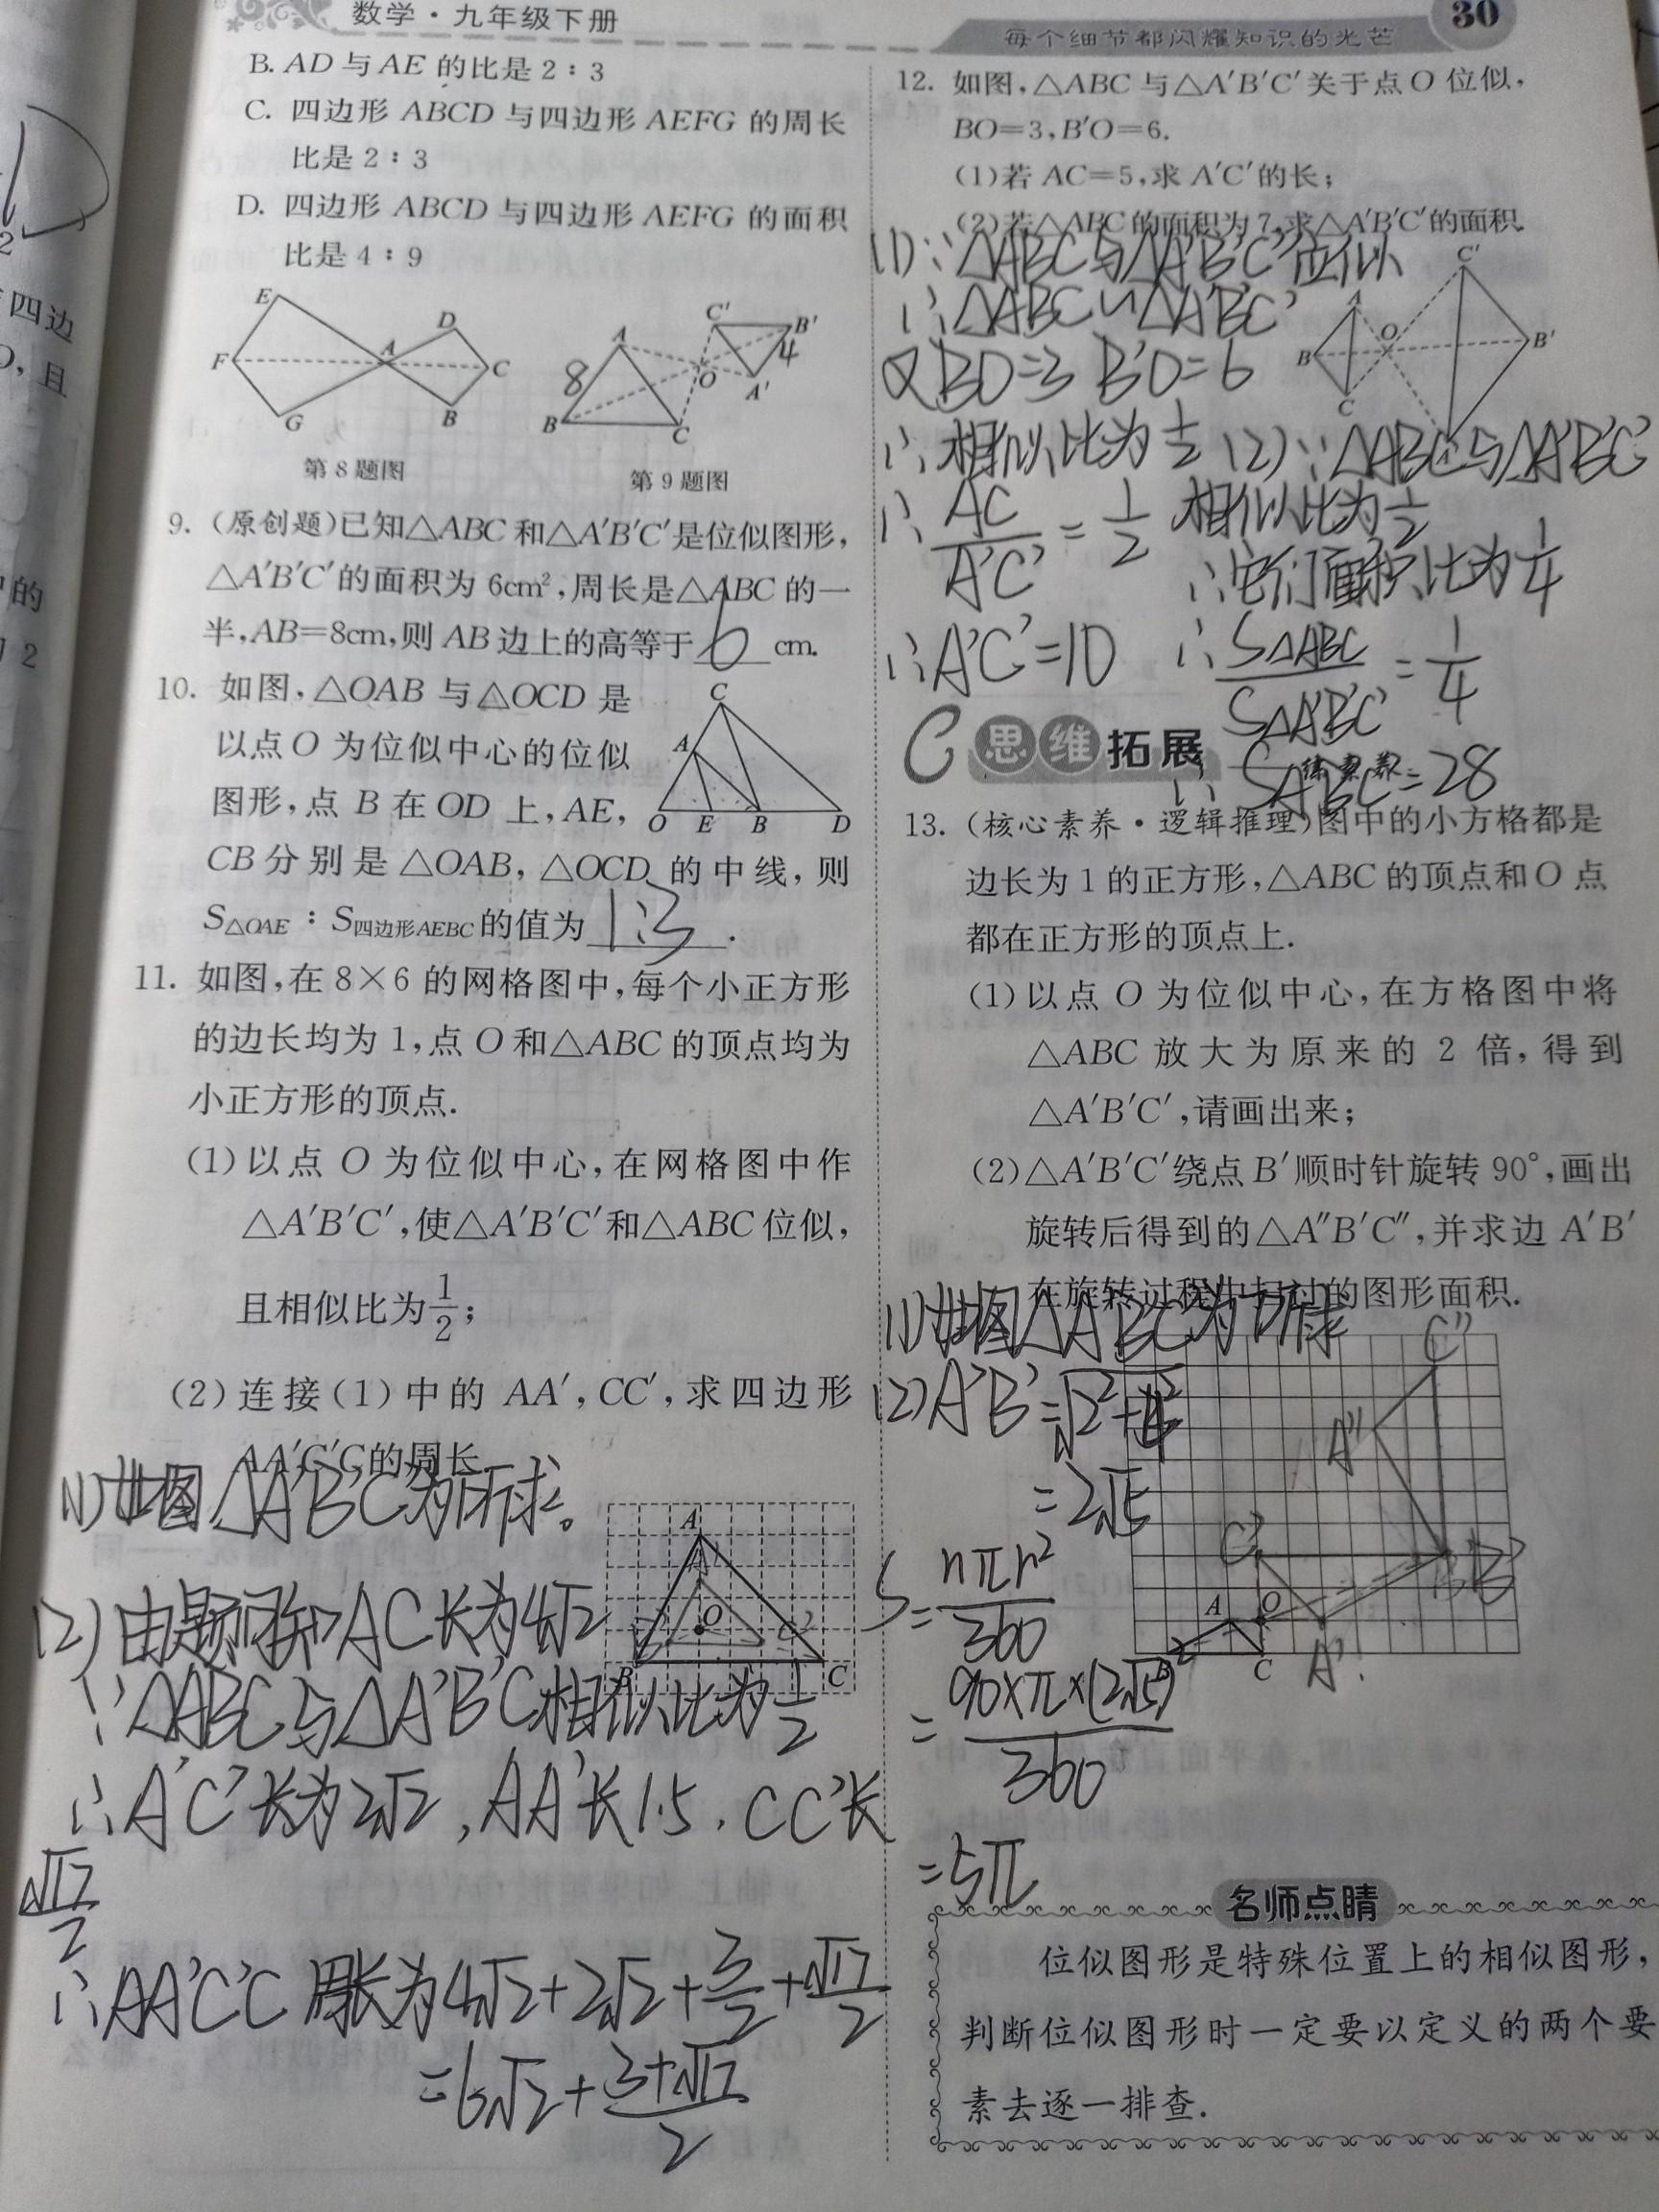 数学·九年级下册
30
每个细节都闪耀知识的光芒
B. AD与AE的比是2:3
C. 四边形ABCD与四边形AEFG的周长
比是2:3
D. 四边形ABCD与四边形AEFG的面积
比是4:9
E
D
F
A
C
G
B
第8题图
C'
B'
A
4
8
O
A'
B
C
第9题图
9. (原创题)已知△ABC和△A'B'C'是位似图形,
△A'B'C'的面积为6cm²,周长是△ABC的一
半,AB=8cm,则AB边上的高等于6cm.
10. 如图,△OAB与△OCD是
以点O为位似中心的位似
图形,点B在OD上,AE,
CB分别是△OAB,△OCD的中线,则
S△OAE:S四边形AEBC的值为1:3.
C
A
O E B D
11. 如图,在8×6的网格图中,每个小正方形
的边长均为1,点O和△ABC的顶点均为
小正方形的顶点.
(1)以点O为位似中心,在网格图中作
△A'B'C',使△A'B'C'和△ABC位似,
且相似比为1/2;
(2)连接(1)中的AA',CC',求四边形
AA'C'C的周长.
(1)如图△A'B'C'为所求。
A
A'
O
C'
B
C
(2)由题可知AC长为4√2
∵△ABC与△A'B'C'相似比为1/2
∴A'C'长为2√2,AA'长1.5,CC'长
√17/2
∴AA'C'C周长为4√2+2√2+3/2+√17/2
=6√2+(3+√17)/2
12. 如图,△ABC与△A'B'C'关于点O位似,
BO=3,B'O=6.
(1)若AC=5,求A'C'的长;
(2)若△ABC的面积为7,求△A'B'C'的面积.
(1)∵△ABC与△A'B'C'位似
∴△ABC∽△A'B'C'
又BO=3 B'O=6
∴相似比为1/2
∴AC/A'C'=1/2
∴A'C'=10
C'
A
O
B
B'
C
(2)∵△ABC与△A'B'C'
相似比为1/2
∴它们面积比为1/4
∴S△ABC/S△A'B'C'=1/4
∴S△A'B'C'=28
C 思维拓展
练素养
13. (核心素养·逻辑推理)图中的小方格都是
边长为1的正方形,△ABC的顶点和O点
都在正方形的顶点上.
(1)以点O为位似中心,在方格图中将
△ABC放大为原来的2倍,得到
△A'B'C',请画出来;
(2)△A'B'C'绕点B'顺时针旋转90°,画出
旋转后得到的△A″B'C″,并求边A'B'
在旋转过程中扫过的图形面积.
(1)如图△A'B'C'为所求
(2)A'B'=√2²+4²
=2√5
S=nπr²/360
=90×π×(2√5)²/360
=5π
C″
A″
C'
B'
A
O
B
C
A'
名师点睛
位似图形是特殊位置上的相似图形,
判断位似图形时一定要以定义的两个要
素去逐一排查.